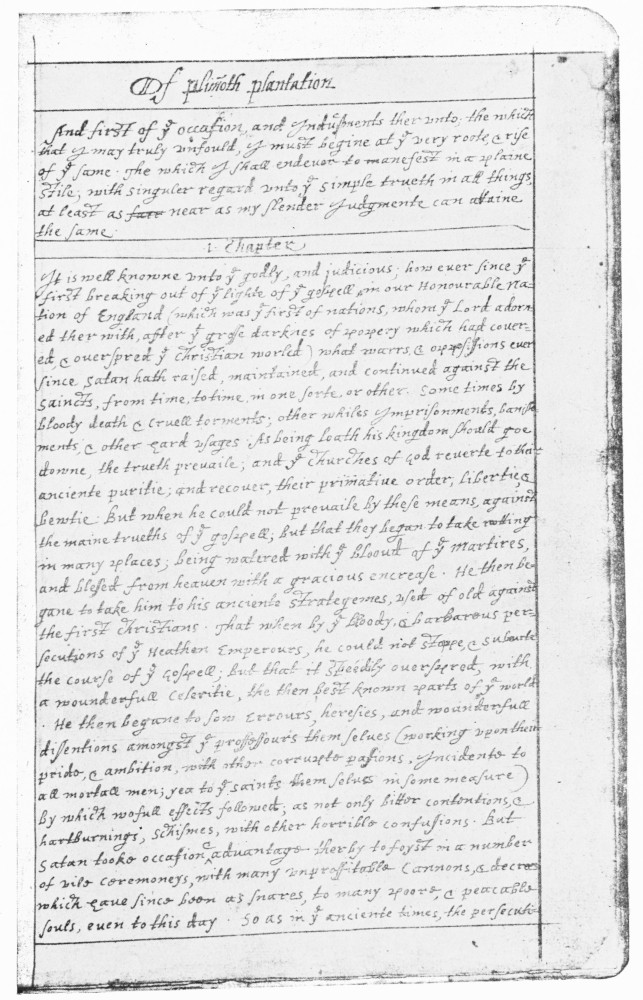 Of plim̃oth plantation
And first of yͤ occasion, and Indusments ther unto; the which
that I may truly unfould, I must begine at yͤ very roote, & rise
of yͤ same. The which I shall endevor to manefest in a plaine
stile; with singuler regard unto yͤ simple trueth in all things,
at least as near as my slender Judgmente can attaine
the same.
1. Chapter
It is well knowne unto yͤ godly, and judicious; how ever since yͤ
first breaking out of yͤ lighte of yͤ gospell, in our Honourable Na-
tion of England (which was yͤ first of nations, whom yͤ Lord adorn-
ed ther with, after yͤ grose darknes of popery which had cover-
ed, & overspred yͤ Christian worled) what warrs, & oppossions ever
since Satan hath raised, maintained, and continued against the
Saincts, from time, to time, in one sorte, or other. Some times by
bloody death & cruell torments; other whiles Imprisonments, banish-
ments, & other hard usages. As being loath his kingdom should goe
downe, the trueth prevaile; and yͤ Churches of God reverte to their
anciente puritie; and recover, their primative order, libertie &
bewtie. But when he could not prevaile by these means, against
the maine trueths of yͤ gospell; but that they began to take rotting
in many places; being watered with yͤ bloood of yͤ Martires,
and blessed from heaven with a gracious encrease. He then be-
gane to take him to his anciente strategemes, used of old against
the first Christians. That when by yͤ bloody, & barbarous per-
secutions of yͤ Heathen Emperours, he could not stoppe, & subverte
the course of yͤ Gospell; but that it speedily overspred, with
a wounderfull Celeritie, the then best known parts of yͤ world
. He then begane to sow Errours, heresies, and wounderfull
disentions amongst yͤ professours them selves (working upon their
pride, & ambition, with other corrupte passions, Incidente to
all mortall men; yea to yͤ saints them selves in some measure)
by which wofull effects followed; as not only bitter contentions, &
hartburnings, schismes, with other horrible confusions. But
Satan tooke occasion & advantage therby to foyst in a number
of vile ceremoneys, with many unproffitable Cannons, & decrees
which have since been as snares, to many poore, & peacable
souls, even to this day. So as in yͤ anciente times, the persecuti-